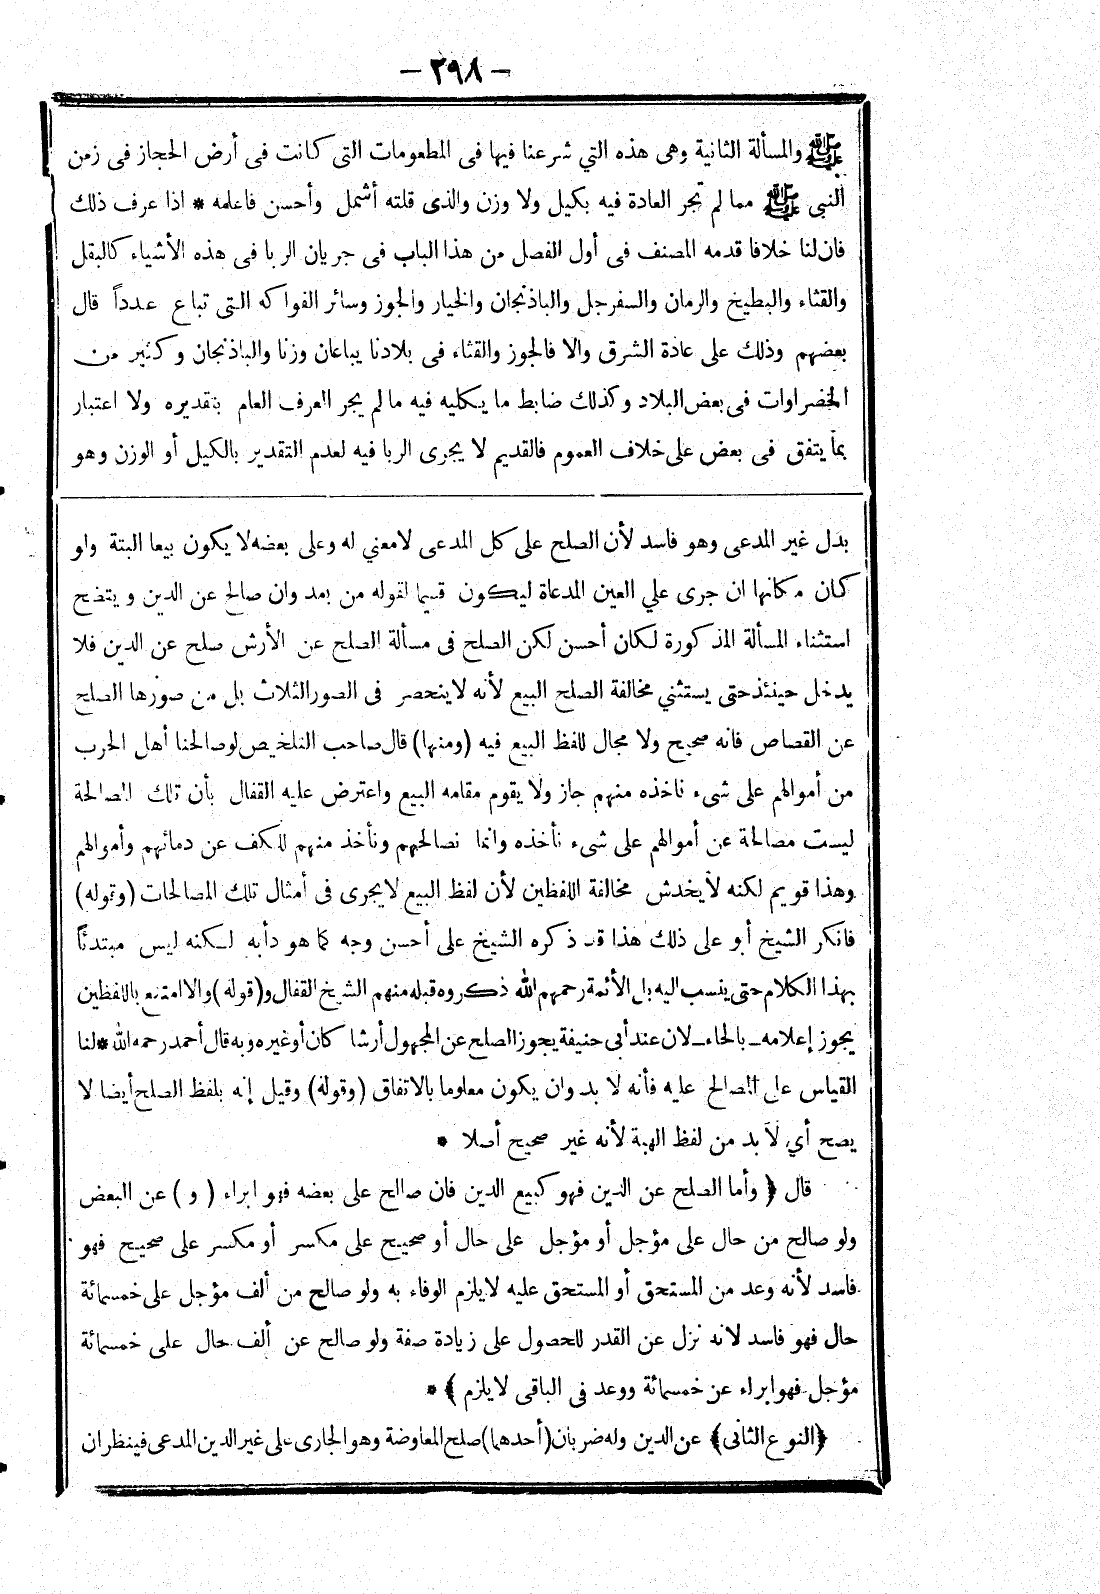 - ٢٩٨ -
ﷺ والمسألة الثانية وهى هذه التي شرعنا فيها فى المطعومات التى كانت فى أرض الحجاز فى زمن
النبى ﷺ مما لم تجر العادة فيه بكيل ولا وزن والذى قلته أشمل وأحسن فاعلمه * اذا عرف ذلك
فان لنا خلافا قدمه المصنف فى أول الفصل من هذا الباب فى جريان الربا فى هذه الأشياء كالبقل
والقثاء والبطيخ والرمان والسفرجل والباذنجان والخيار والجوز وسائر الفواكه التى تباع عدداً قال
بعضهم وذلك على عادة الشرق والا فالجوز والقثاء فى بلادنا يباعان وزنا والباذنجان وكثير من
الخضراوات فى بعض البلاد وكذلك ضابط ما يكليه فيه ما لم يجر العرف العام بتقديره ولا اعتبار
بما يتفق فى بعض على خلاف العموم فالقديم لا يجرى الربا فيه لعدم التقدير بالكيل أو الوزن وهو
بدل غير المدعى وهو فاسد لأن الصلح على كل المدعى لامعني له وعلى بعضه لا يكون بيعا البتة ولو
كان مكانها ان جرى علي العين المدعاة ليكون قسيما لقوله من بعد وان صالح عن الدين ويتضح
استثناء المسألة المذكورة لكان أحسن لكن الصلح فى مسألة الصلح عن الأرش صلح عن الدين فلا
يدخل حينئذ حتى يستثني مخالفة الصلح البيع لأنه لا ينحصر فى الصور الثلاث بل من صورها الصلح
عن القصاص فانه صحيح ولا مجال للفظ البيع فيه (ومنها) قال صاحب التلخيص لو صالحنا أهل الحرب
من أموالهم على شىء ناخذه منهم جاز ولا يقوم مقامه البيع واعترض عليه القفال بأن تلك المصالحة
ليست مصالحة عن أموالهم على شىء نأخذه وانما نصالحهم ونأخذ منهم للكف عن دمائهم وأموالهم
وهذا قويم لكنه لا يخدش مخالفة اللفظين لأن لفظ البيع لا يجرى فى أمثال تلك المصالحات (وقوله)
فانكر الشيخ أبو على ذلك هذا قد ذكره الشيخ على أحسن وجه كما هو دأبه لكنه ليس مبتدئاً
بهذا الكلام حتى ينسب اليه بل الأئمة رحمهم الله ذكروه قبله منهم الشيخ القفال و(قوله) والا امتنع باللفظين
يجوز إعلامه ـ بالحاء ـ لان عند أبى حنيفة يجوز الصلح عن المجهول أرشا كان أو غيره وبه قال أحمد رحمه الله * لنا
القياس على المصالح عليه فأنه لا بد وان يكون معلوما بالاتفاق (وقوله) وقيل إنه بلفظ الصلح أيضا لا
يصح أي لا بد من لفظ الهبة لأنه غير صحيح أصلا *
قال ﴿ وأما الصلح عن الدين فهو كبيع الدين فان صالح على بعضه فهو ابراء ( و ) عن البعض
ولو صالح من حال على مؤجل أو مؤجل على حال أو صحيح على مكسر أو مكسر على صحيح فهو
فاسد لأنه وعد من المستحق أو المستحق عليه لا يلزم الوفاء به ولو صالح من ألف مؤجل على خمسمائة
حال فهو فاسد لانه نزل عن القدر للحصول على زيادة صفة ولو صالح عن ألف حال على خمسمائة
مؤجل فهو ابراء عن خمسمائة ووعد فى الباقى لا يلزم ﴾ *
﴿النوع الثانى﴾ عن الدين وله ضربان (أحدهما) صلح المعاوضة وهو الجارى على غير الدين المدعى فينظر ان